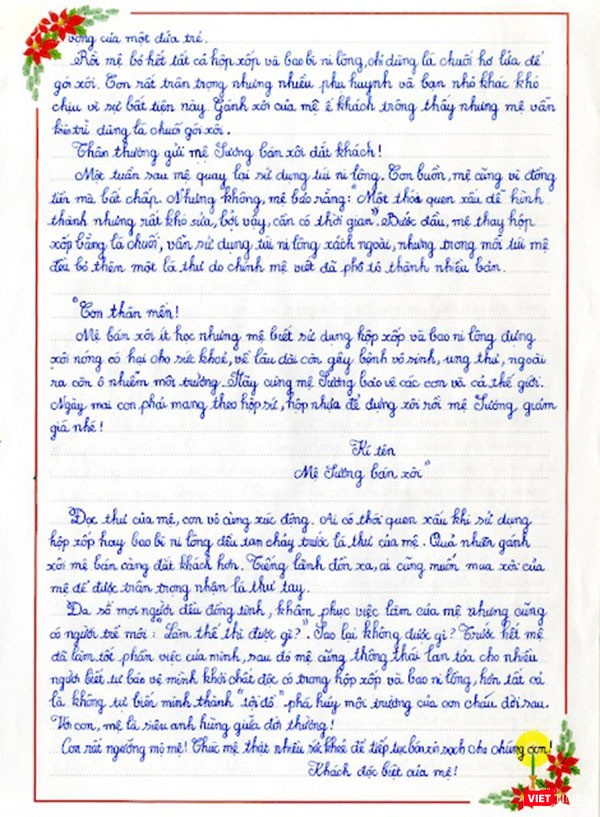 vọng của một đứa trẻ.
Rồi mệ bỏ hết tất cả hộp xốp và bao bì ni lông, chỉ dùng lá chuối hơ lửa để
gói xôi. Con rất trân trọng nhưng nhiều phụ huynh và bạn nhỏ khác khó
chịu vì sự bất tiện này. Gánh xôi của mệ ế khách trông thấy nhưng mệ vẫn
kiên trì dùng lá chuối gói xôi.
Thân thương gửi mệ Sương bán xôi đắt khách!
Một tuần sau mệ quay lại sử dụng túi ni lông. Con buồn, mệ cũng vì đồng
tiền mà bất chấp. Nhưng không, mệ bảo rằng: "Một thói quen xấu dễ hình
thành nhưng rất khó sửa, bởi vậy, cần có thời gian". Bước đầu, mệ thay hộp
xốp bằng lá chuối, vẫn sử dụng túi ni lông xách ngoài, nhưng trong mỗi túi mệ
đều bỏ thêm một lá thư do chính mệ viết đã phô tô thành nhiều bản.
"Con thân mến!
Mệ bán xôi ít học nhưng mệ biết sử dụng hộp xốp và bao ni lông đựng
xôi nóng có hại cho sức khoẻ, về lâu dài còn gây bệnh vô sinh, ung thư, ngoài
ra còn ô nhiễm môi trường. Hãy cùng mệ Sương bảo vệ các con và cả thế giới.
Ngày mai con phải mang theo hộp sứ, hộp nhựa để đựng xôi rồi mệ Sương giảm
giá nhé!
Kí tên
Mệ Sương bán xôi"
Đọc thư của mệ, con vô cùng xúc động. Ai có thói quen xấu khi sử dụng
hộp xốp hay bao bì ni lông đều tan chảy trước lá thư của mệ. Quả nhiên gánh
xôi mệ bán càng đắt khách hơn. Tiếng lành đồn xa, ai cũng muốn mua xôi của
mệ để được trân trọng nhận lá thư tay.
Đa số mọi người đều đồng tình, khâm phục việc làm của mệ nhưng cũng
có người trề môi: "Làm thế thì được gì?" Sao lại không được gì? Trước hết mệ
đã làm tốt phần việc của mình, sau đó mệ cũng thông thái lan tỏa cho nhiều
người biết tự bảo vệ mình khỏi chất độc có trong hộp xốp và bao ni lông, hơn tất cả
là không tự biến mình thành "tội đồ" phá hủy môi trường của con cháu đời sau.
Với con, mệ là siêu anh hùng giữa đời thường!
Con rất ngưỡng mộ mệ! Chúc mệ thật nhiều sức khoẻ để tiếp tục bán xôi sạch cho chúng con!
Khách đặc biệt của mệ!
VIET